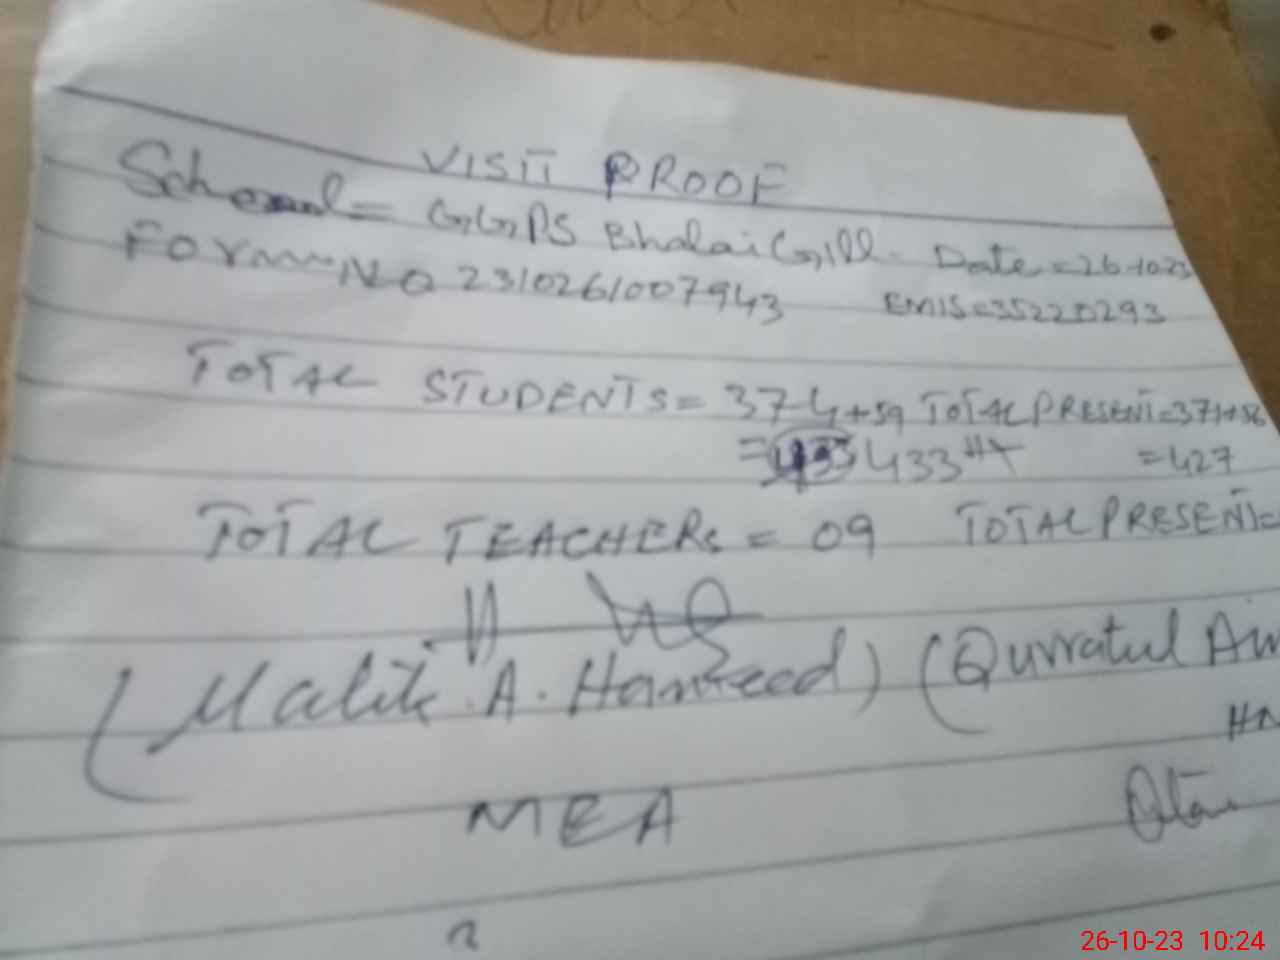 VISIT PROOF
School = G,G,PS Bhalai Gill. Date = 26-10-23
Form No 2310261007943 EMIS = 35220293
TOTAL STUDENTS = 374+59 TOTAL PRESENT = 371+56
= 433 433 = 427
TOTAL TEACHERs = 09 TOTAL PRESENT =
(Malik. A. Hameed) (Qurratul Ain
MEA
26-10-23 10:24